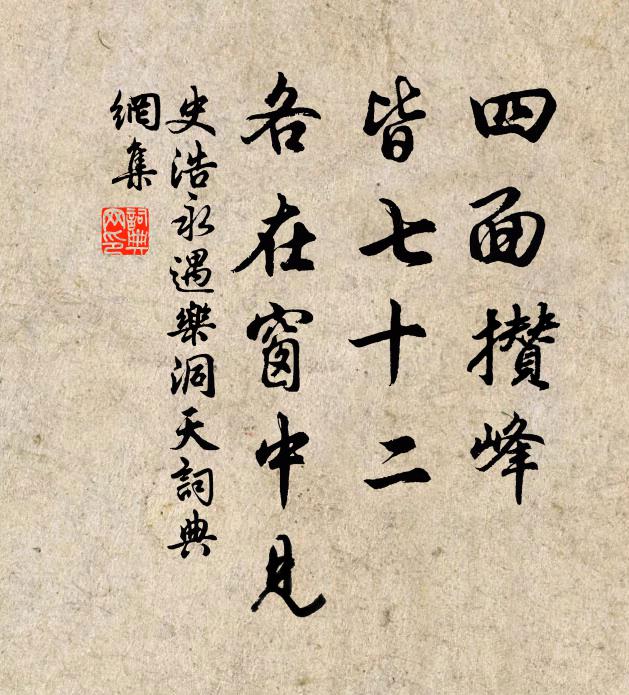 四面攢峰
皆七十二
各在窗中見
史浩永遇樂洞天詞典
網集
詞典
网印